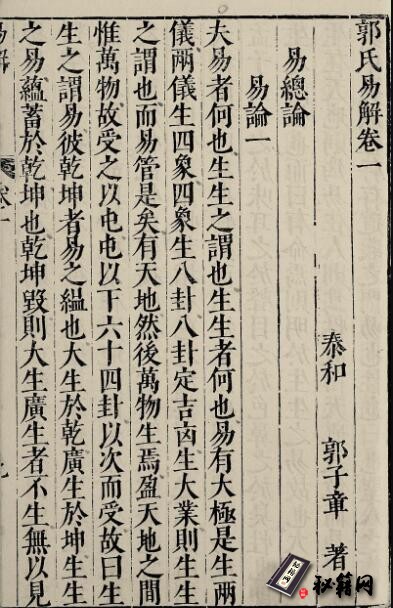 郭氏易解卷一
泰和 郭子章 著
易總論
易論一
夫易者何也生生之謂也生生者何也易有大極是生兩
儀兩儀生四象四象生八卦八卦定吉凶生大業則生生
之謂也而易管是矣有天地然後萬物生焉盈天地之間
惟萬物故受之以屯屯以下六十四卦以次而受故曰生
生之謂易彼乾坤者易之縕也大生於乾廣生於坤生生
之易蘊蓄於乾坤也乾坤毀則大生廣生者不生無以見
秘籍网